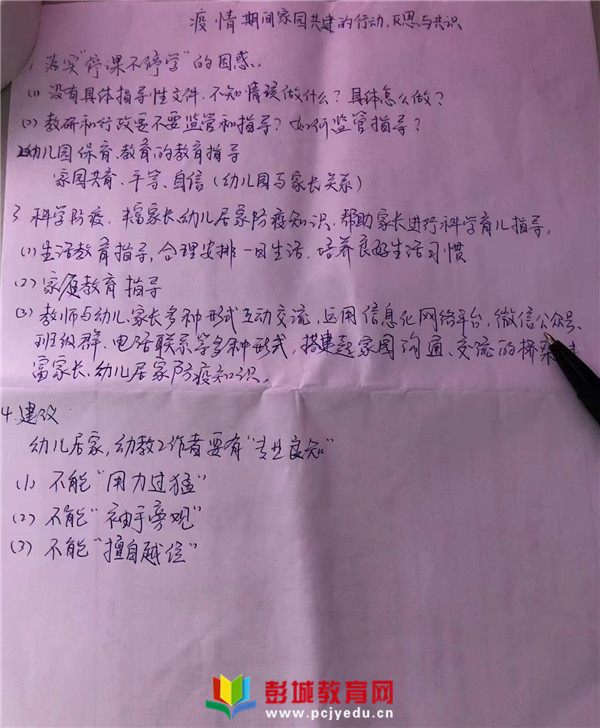 疫情期间家园共建的行动、反思与共识
1、落实“停课不停学”的困惑.
(1) 没有具体指导性文件.不知情该做什么?具体怎么做?
(2) 教研和行政要不要监管和指导?如何监管指导?
2.幼儿园保育、教育的教育指导
家园共育、平等、自信(幼儿园与家长关系)
3. 科学防疫.丰富家长、幼儿居家防疫知识.帮助家长进行科学育儿指导。
(1) 生活教育指导,合理安排一日生活.培养良好生活习惯
(2) 家庭教育指导
(3) 教师与幼儿、家长多种形式互动交流,运用信息化网络平台,微信公众号、
班级群、电话联系等多种形式,搭建起家园沟通、交流的桥梁
富家长、幼儿居家防疫知识。
4.建议
幼儿居家,幼教工作者要有“专业良知”
(1) 不能“用力过猛”
(2) 不能“袖手旁观”
(3) 不能“擅自越位”
彭城教育网
www.pcjyedu.cn